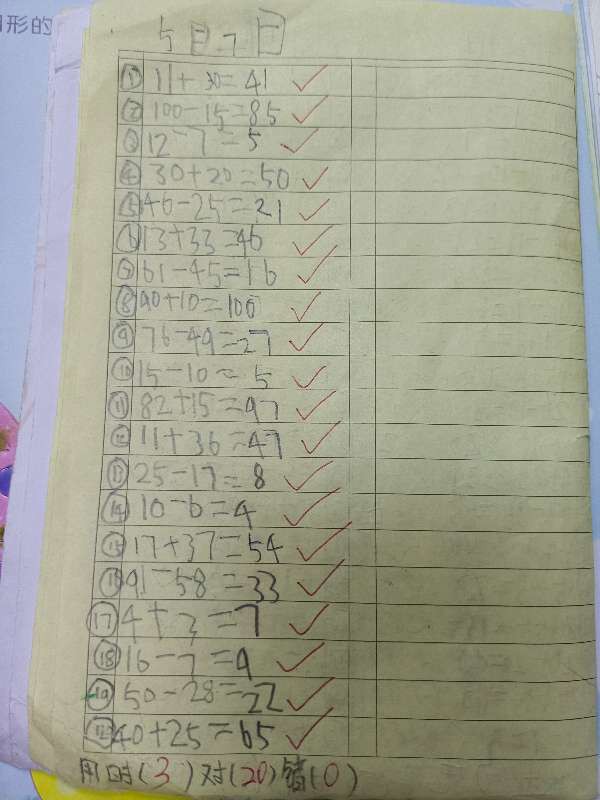 形的
5日7日
① 11+30=41 ✓
② 100-15=85 ✓
③ 12-7=5 ✓
④ 30+20=50 ✓
⑤ 46-25=21 ✓
⑥ 13+33=46 ✓
⑦ 61-45=16 ✓
⑧ 90+10=100 ✓
⑨ 76-49=27 ✓
⑩ 15-10=5 ✓
⑪ 82+15=97 ✓
⑫ 11+36=47 ✓
⑬ 25-17=8 ✓
⑭ 10-6=4 ✓
⑮ 17+37=54 ✓
⑯ 91-58=33 ✓
⑰ 4+3=7 ✓
⑱ 16-7=9 ✓
⑲ 50-28=22 ✓
40+25=65 ✓
用时(3)对(20)错(0)